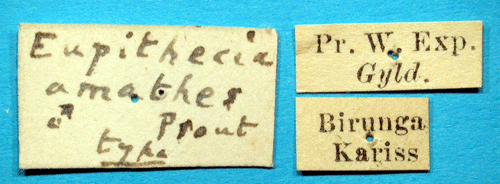 Eupithecia
amathes
♂ Prout
type
Pr. W. Exp.
Gyld.
Birunga
Kariss